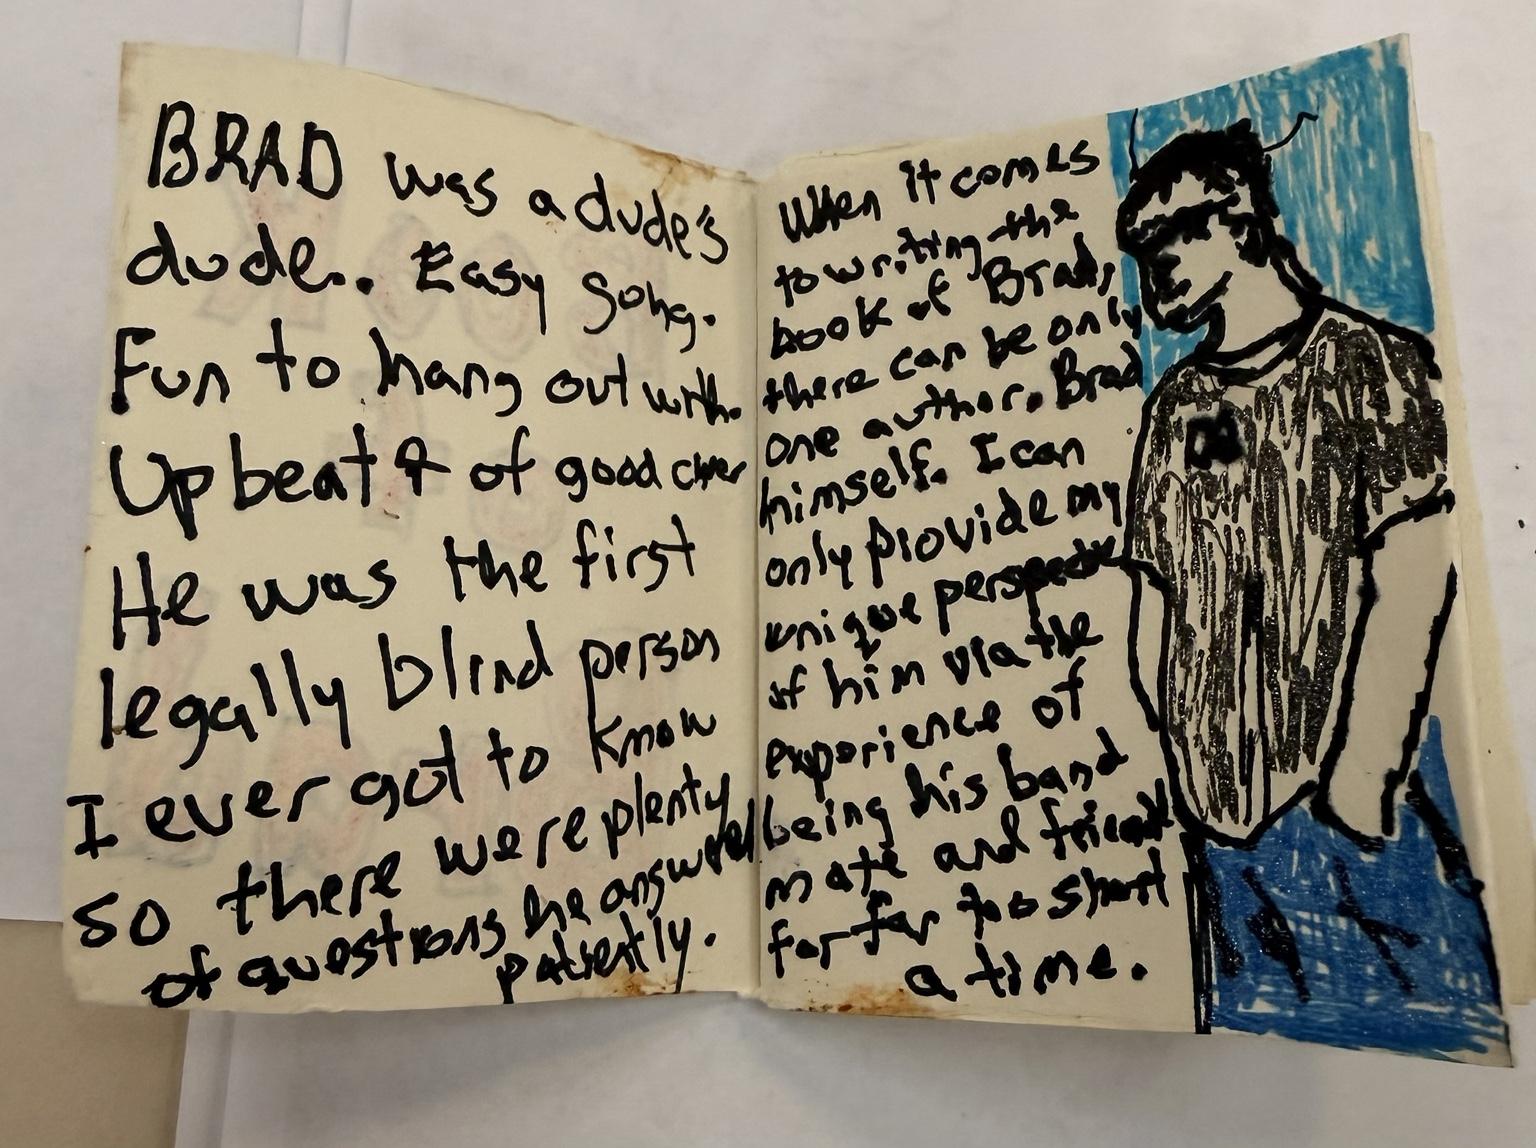 BRAD was a dude's
dude. Easy going.
Fun to hang out with.
Up beat & of good cheer
He was the first
legally blind person
I ever got to know
so there were plenty
of questions he answered
patiently.
When it comes
to writing the
book of Brad,
there can be only
one author. Brad
himself. I can
only provide my
unique perspective
of him via the
experience of
being his band
mate and friend
for far too short
a time.